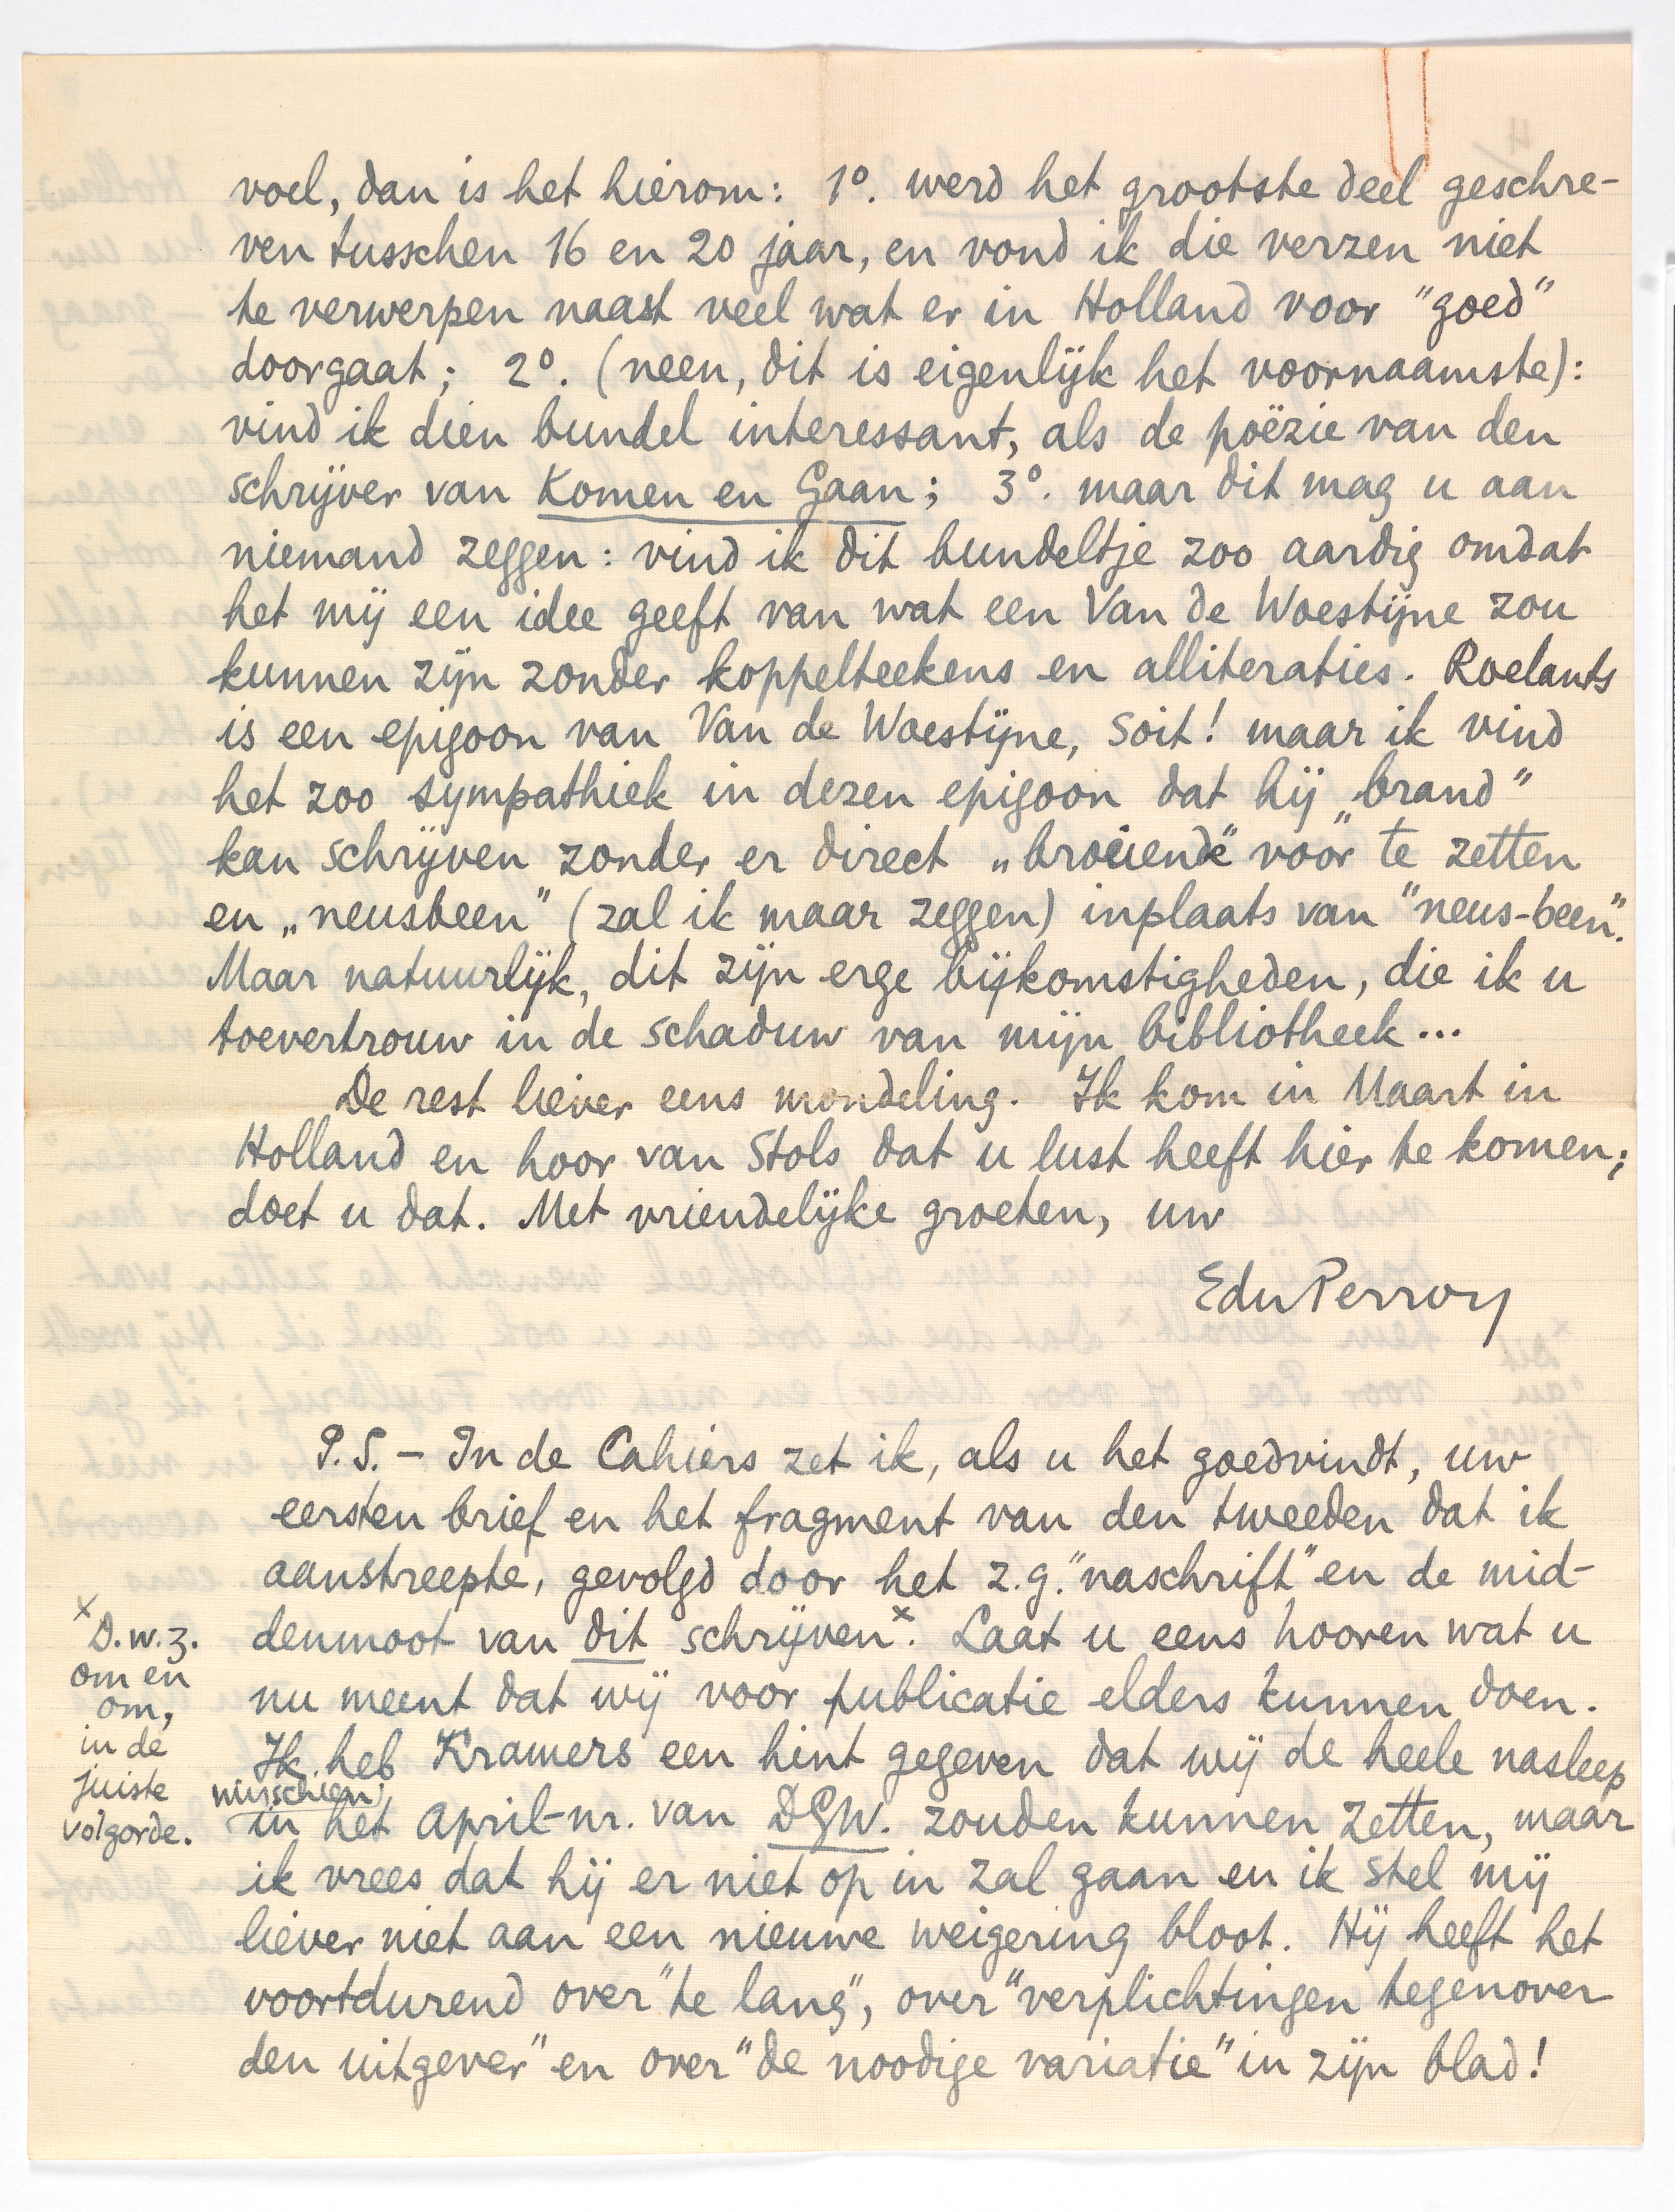 voel, dan is het hierom: 1°. werd het grootste deel geschre-
ven tusschen 16 en 20 jaar, en vond ik die verzen niet
te verwerpen naast veel wat er in Holland voor "goed"
doorgaat; 2°. (neen, dit is eigenlijk het voornaamste):
vind ik dien bundel interessant, als de poëzie van den
schrijver van Komen en Gaan; 3°. maar dit mag u aan
niemand zeggen: vind ik dit bundeltje zoo aardig omdat
het mij een idee geeft van wat een Van de Woestijne zou
kunnen zijn zonder koppelteekens en alliteraties. Roelants
is een epigoon van Van de Woestijne, soit! maar ik vind
het zoo sympathiek in dezen epigoon dat hij „brand"
kan schrijven zonder er direct „broeiend" voor te zetten
en „neusbeen" (zal ik maar zeggen) inplaats van "neus-been".
Maar natuurlijk, dit zijn erge bijkomstigheden, die ik u
toevertrouw in de schaduw van mijn bibliotheek...
De rest liever eens mondeling. Ik kom in Maart in
Holland en hoor van Stols dat u lust heeft hier te komen;
doet u dat. Met vriendelijke groeten, uw
EduPerron
P.S. – In de Cahiers zet ik, als u het goedvindt, uw
eersten brief en het fragment van den tweeden dat ik
aanstreepte, gevolgd door het z.g. "naschrift" en de mid-
denmoot van dit schrijven x. Laat u eens hooren wat u
nu meent dat wij voor publicatie elders kunnen doen.
Ik heb Kramers een hint gegeven dat wij de heele nasleep
misschien
in het April-nr. van DGW. zouden kunnen zetten, maar
ik vrees dat hij er niet op in zal gaan en ik stel mij
liever niet aan een nieuwe weigering bloot. Hij heeft het
voortdurend over "te lang", over "verplichtingen tegenover
den uitgever" en over "de noodige variatie" in zijn blad!
x D.w.z.
om en
om,
in de
juiste
volgorde.